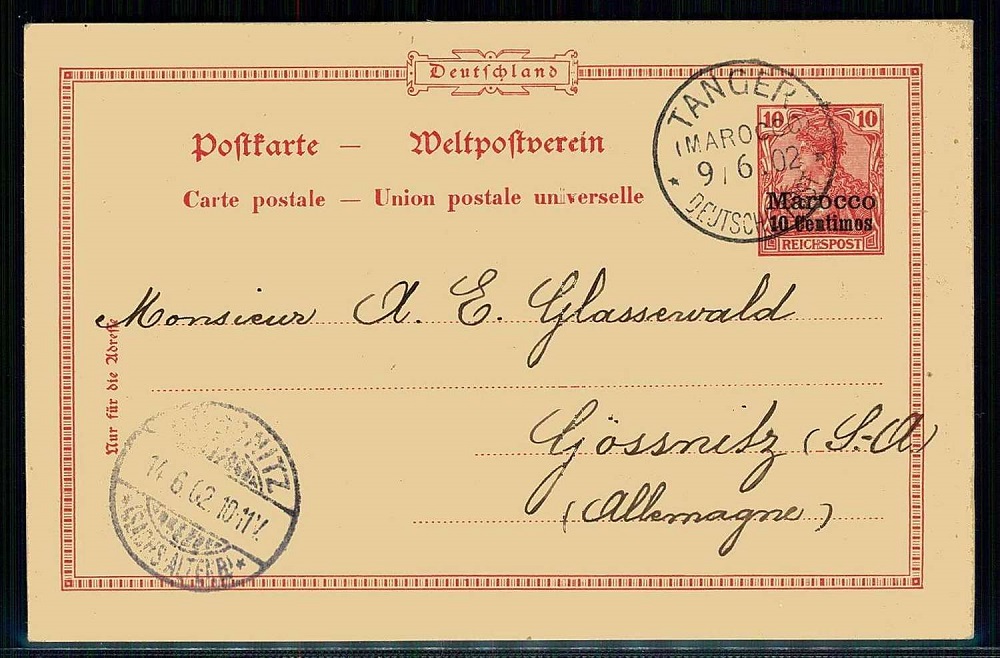 Deutschland
TANGER
(MAROCCO)
9/6.02
DEUTSCHE
10 10
Marocco
10 Centimos
REICHSPOST
Postkarte — Weltpostverein
Carte postale — Union postale universelle
Nur für die Adresse
Monsieur A. E. Glassewald
Gössnitz (S.-A)
(Allemagne)
14.6.02.10-11V.
(SACHS.ALTENB)